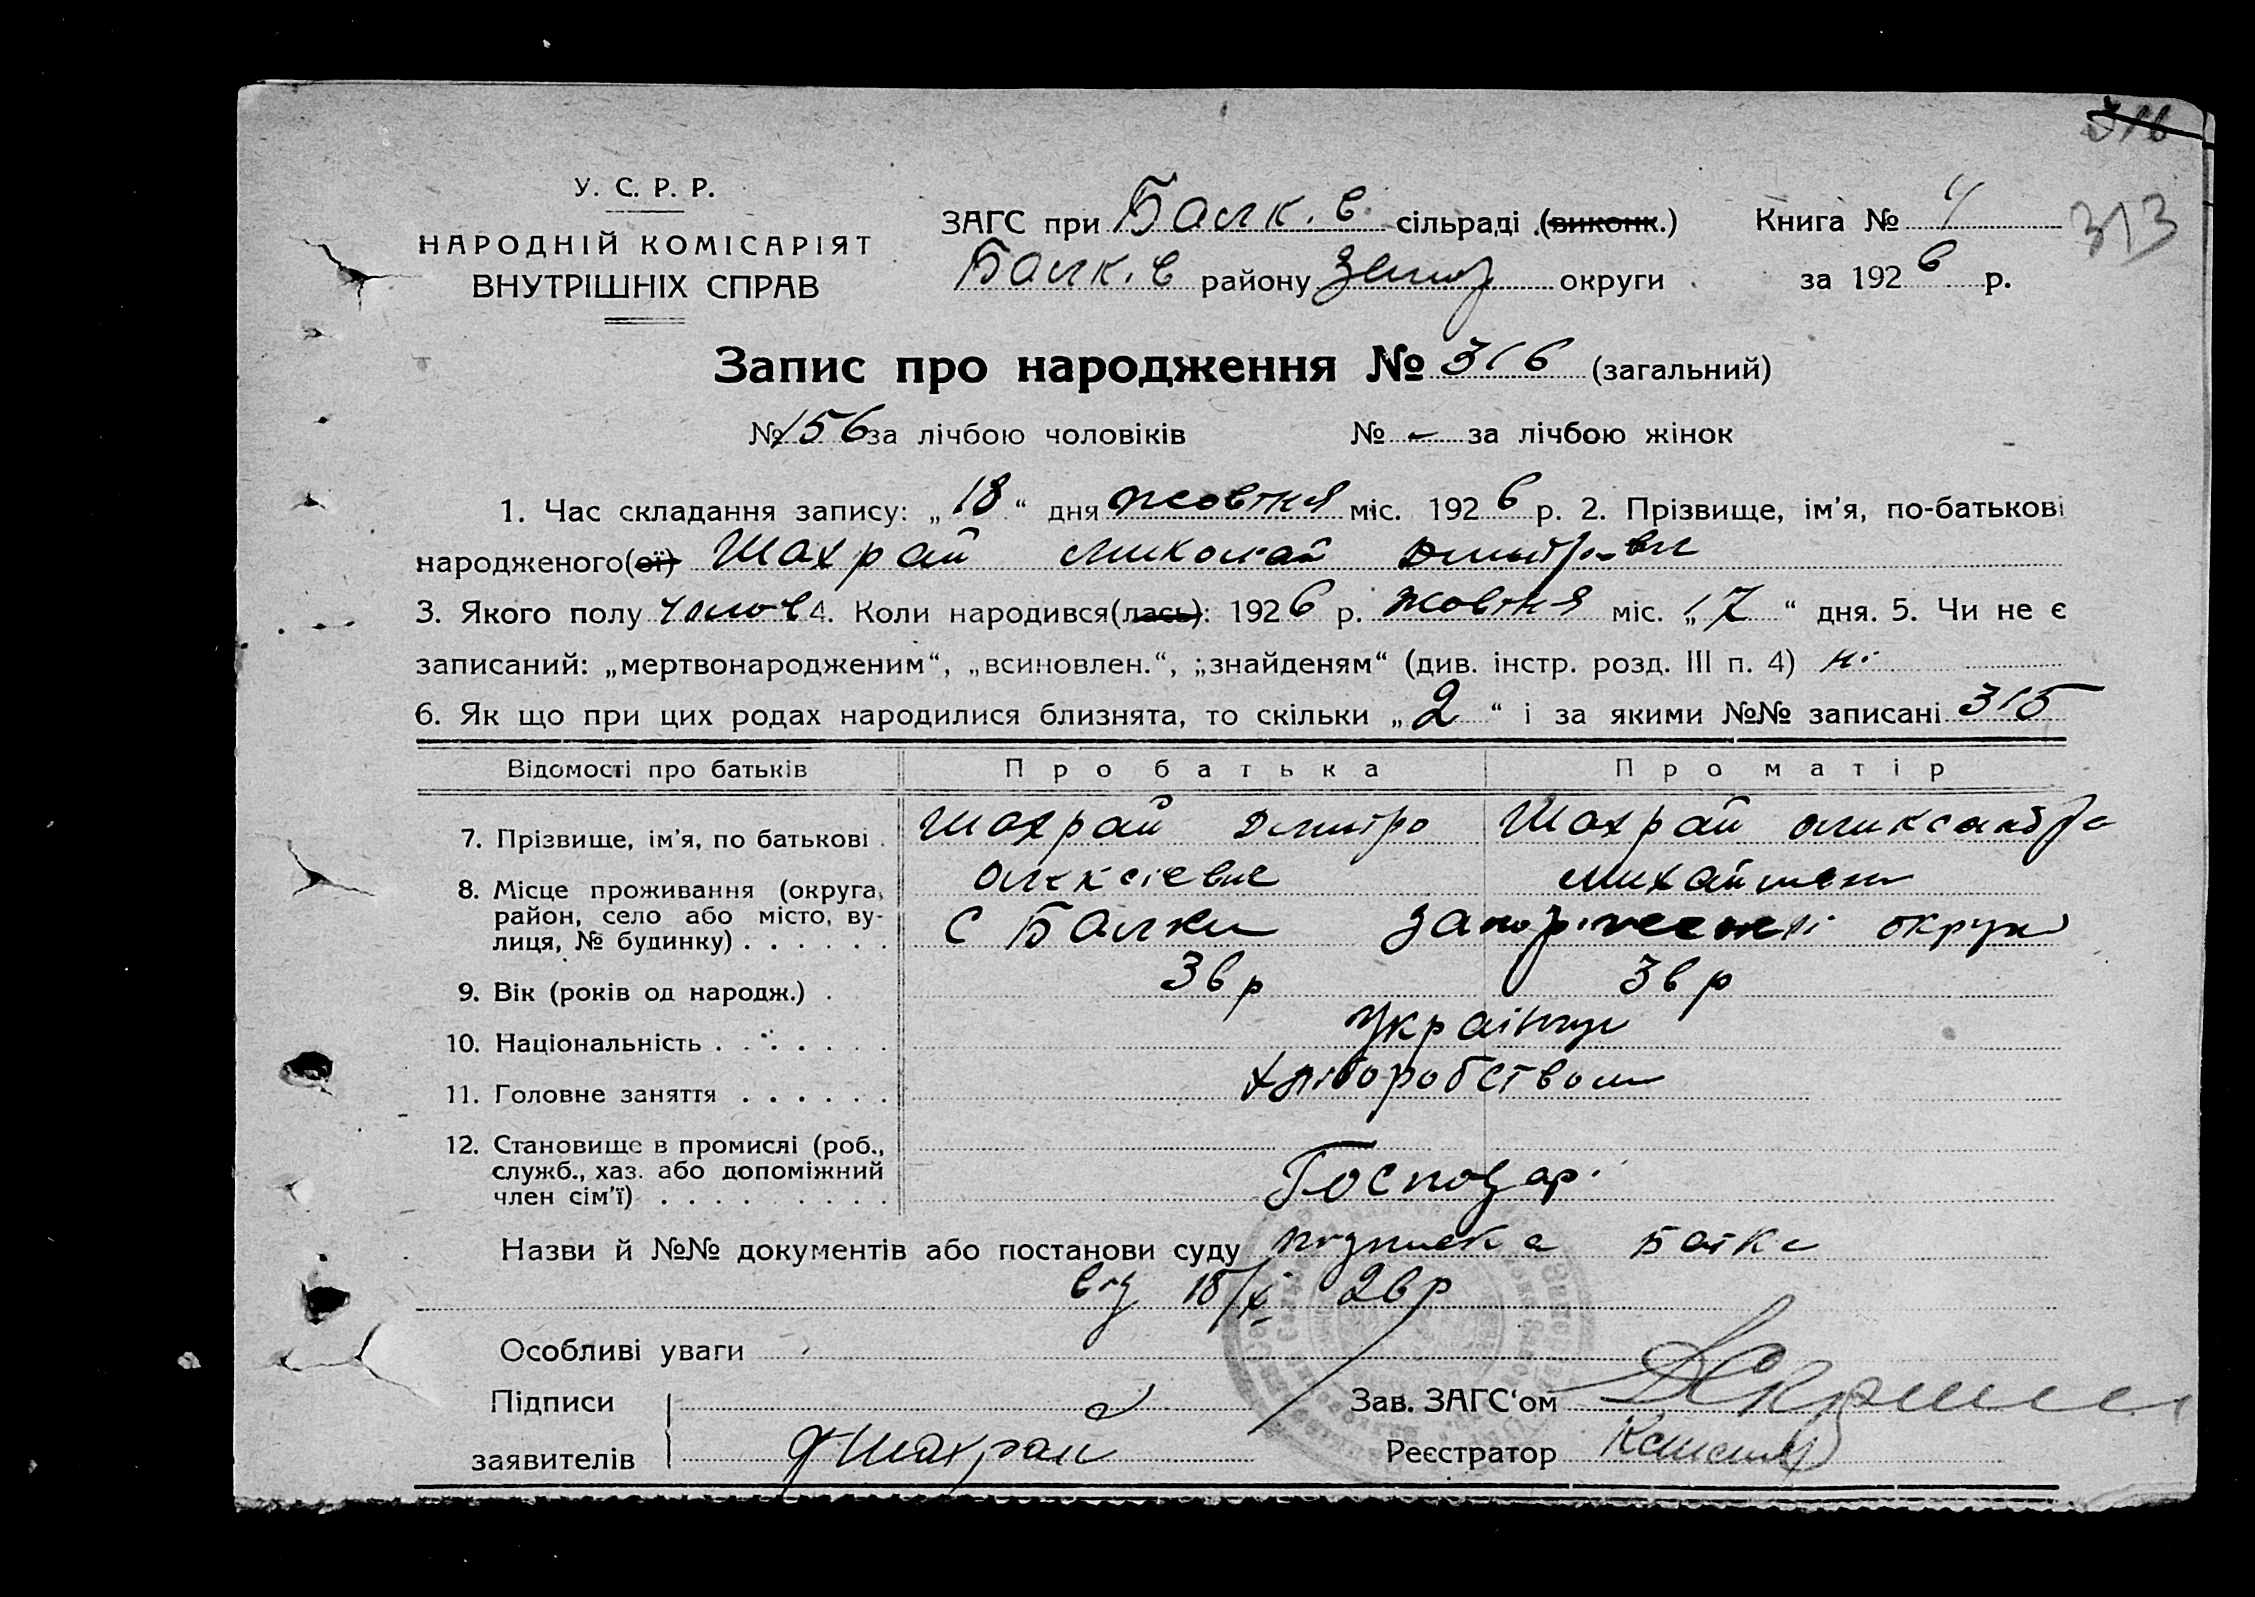 316
313
У. С. Р. Р.
НАРОДНІЙ КОМІСАРІЯТ
ВНУТРІШНІХ СПРАВ
ЗАГС при Балк. в. сільраді (виконк.) Книга № 4
Балк. в району Запор округи за 1926 р.
Запис про народження № 316 (загальний)
№ 156 за лічбою чоловіків № - за лічбою жінок
1. Час складання запису: „18“ дня жовтня міс. 1926 р. 2. Прізвище, ім’я, по-батькові
народженого(ої) Шахрай Миколай Дмитрович
3. Якого полу чолов 4. Коли народився(лась): 1926 р. жовтня міс. „17“ дня. 5. Чи не є
записаний: „мертвонародженим“, „всиновлен.“, „знайденям“ (див. інстр. розд. III п. 4) ні
6. Як що при цих родах народилися близнята, то скільки „2“ і за якими №№ записані 315
Відомості про батьків Про батька Про матір
7. Прізвище, ім’я, по батькові . Шахрай Дмитро Шахрай Олександра
Олексієвич Михайловн
8. Місце проживання (округа, район, село або місто, вулиця, № будинку) . . . . . . с Балки Запоріжської округи
9. Вік (років од народж.) . 36 р 36 р
10. Національність . . . . . . . Українці
11. Головне заняття . . . . . . хліборобством
12. Становище в промислі (роб., служб., хаз. або допоміжний член сім’ї) . . . . . . . . . Господар
Назви й №№ документів або постанови суду підписка батка
від 18/X 26 р
Особливі уваги
Підписи Зав. ЗАГС‘ом
заявителів Д Шахрай Реєстратор